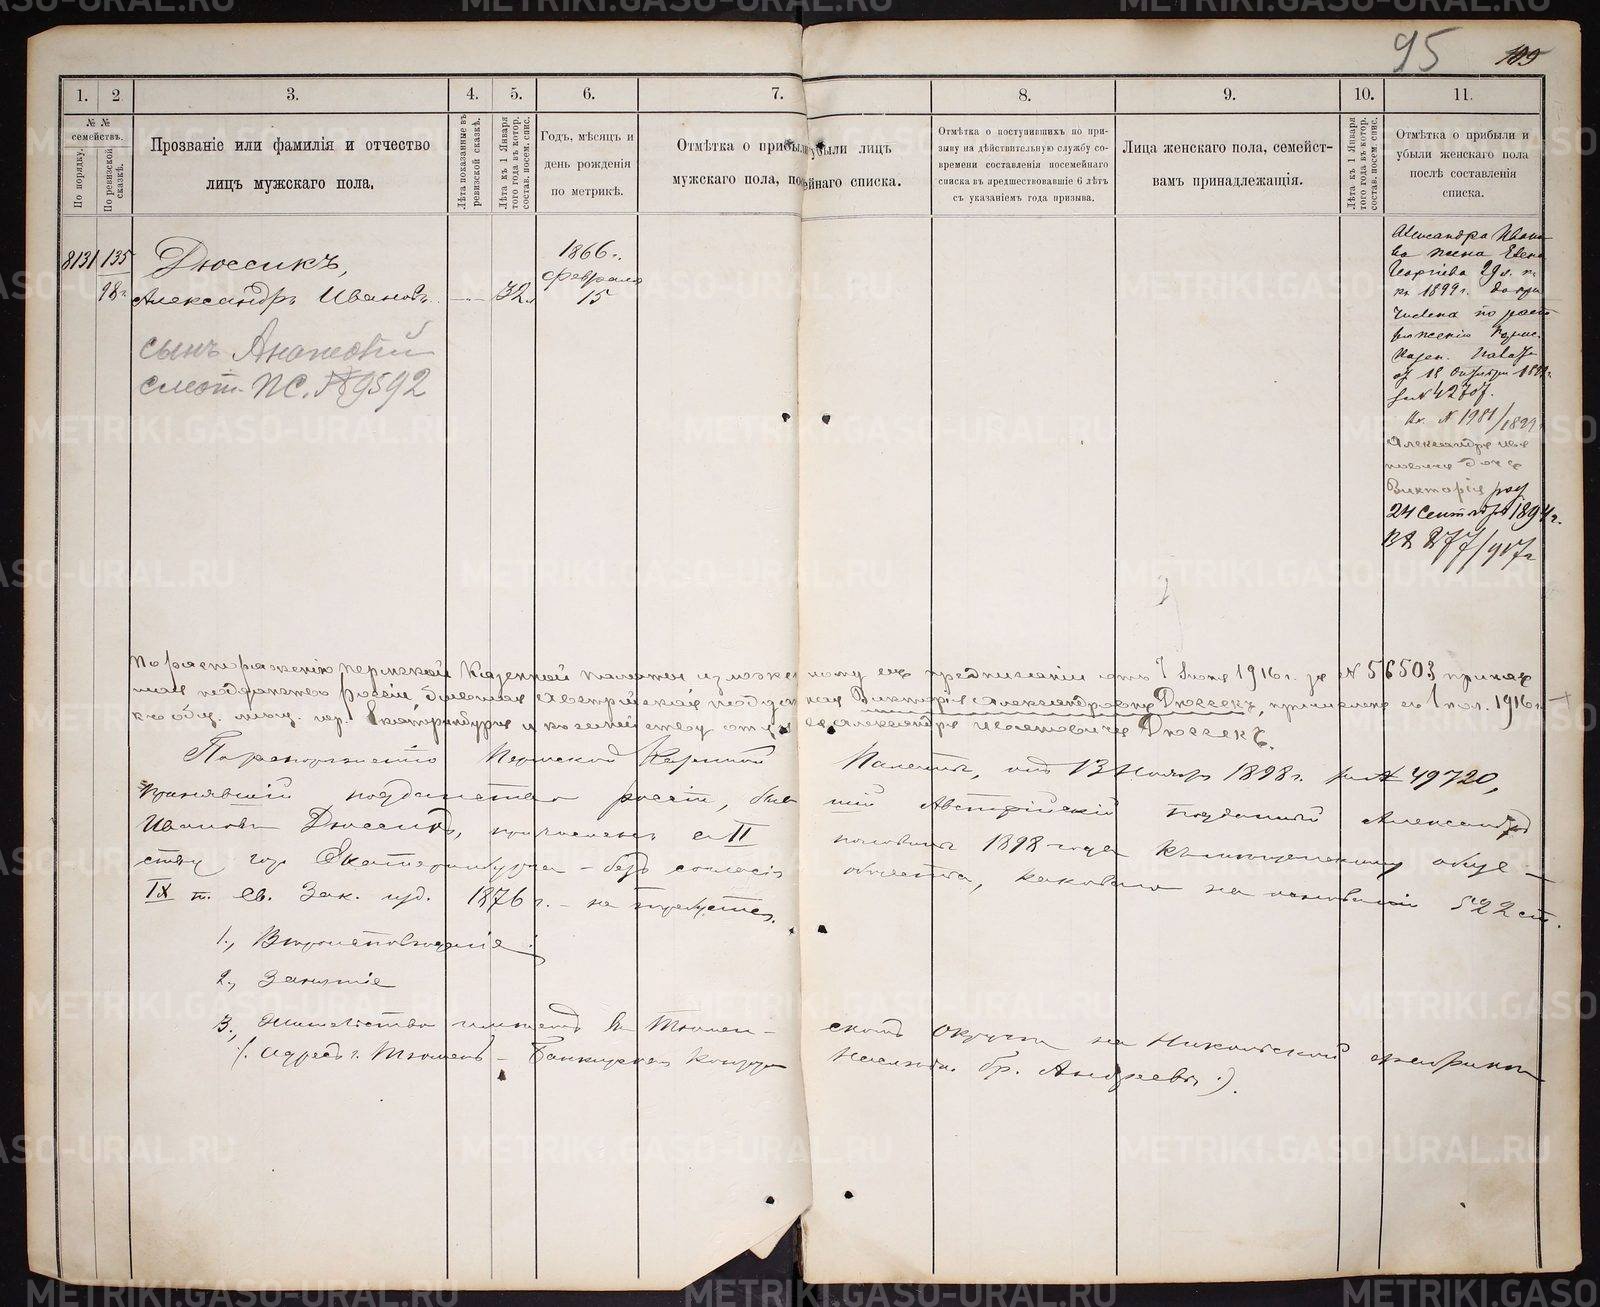 95
109
1.
2
3.
4.
5.
6.
7.
8.
9.
10.
11.
№ №
семействъ.
По порядку.
По ревизской
сказкѣ.
Прозваніе или фамилія и отчество
лицъ мужскаго пола.
Лѣта показанныя въ
ревизской сказкѣ.
Лѣта къ 1 Января
того года въ котор.
состав. посем. спис.
Годъ, мѣсяцъ и
день рожденія
по метрикѣ.
Отмѣтка о прибыли убыли лицъ
мужскаго пола, по ейнаго списка.
Отмѣтка о поступившихъ по при-
зыву на дѣйствительную службу со-
времени составленія посемейнаго
списка въ предшествовавшіе 6 лѣтъ
съ указаніемъ года призыва.
Лица женскаго пола, семейст-
вамъ принадлежащія.
Лѣта къ 1 Января
того года въ котор.
состав. посем. спис.
Отмѣтка о прибыли и
убыли женскаго пола
послѣ составленія
списка.
8131
135
98 г.
Дюссикъ,
Александръ Ивановъ
32
1866 г.
Февраля
15
сынъ
смот. ПС. №9592
Александра Ивано
ва жена Евген
Георгіева 29 л.
къ 1899 г. допри
числена по распо
ряженію Перм.
Казен. Палаты
отъ 18 Октября
Вх. № 1981/1899
Александра Ива
новича дочь
Викторія род
24 Сентября 1894 г.
Вх 877/917 г
По распоряженію Пермской Казенной Палаты изложенному въ предписаніи отъ 7 Іюня 1916 г. за № 56503 приняв
шая подданство россіи бывшая Австрійская подданная Викторія Александровна Дюссекъ, причислена съ 1 пол. 1916 г.
къ общ. мѣщ. гор. Екатеринбурга и къ семейству отца ея Александра Ивановича Дюссекъ.
По распоряженію Пермской Казенной Палаты, отъ 13 Ноября 1898 г. за № 49720,
принявшій подданство россіи, бывшій Австрійскій подданный Александръ
Ивановъ Дюссекъ, причисленъ съ II половины 1898 года къ мѣщанскому обще-
ству гор Екатеринбурга – безъ согласія общества, каковаго на основаніи 522 ст.
IX т. Св. Зак. изд. 1876 г. – не требуется.
1., Вѣроисповѣданіе
2., Занятіе
3., Жительство имѣетъ въ Тюмен- скомъ Округѣ на Никольской фабрикѣ
(. Адресъ г. Тюмень – Банкирская Контора Наслѣдн. бр. Андреевы.).
METRIKI.GASO-URAL.RU